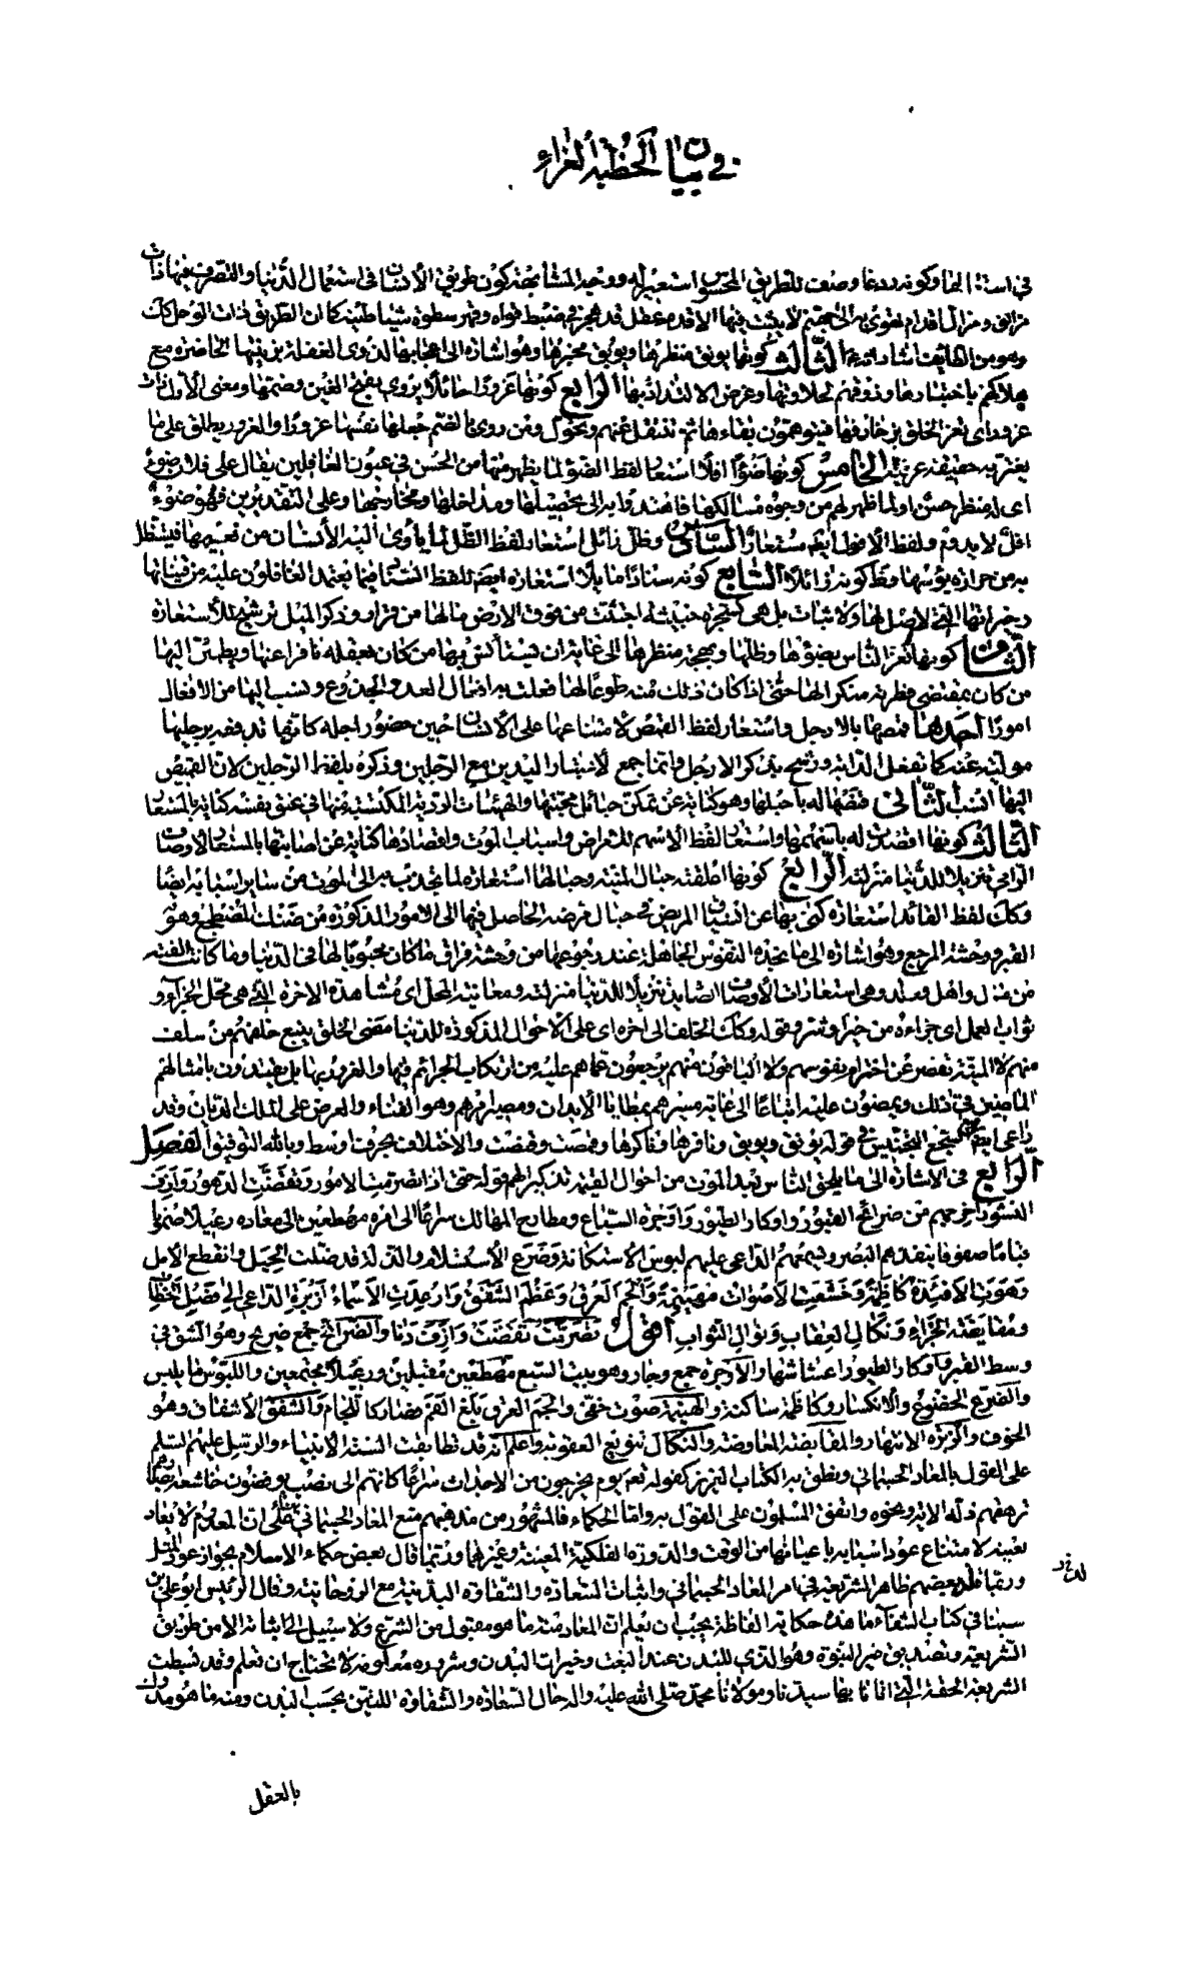 في بيان الخطبة الغراء
في استقائها وكونه ردغا وصف للطريق المحسوس استعير له ووجه المشابهة كون طريق الأنسان في استعمال الدنيا والتصرف فيها ذات
مزالق ومزال اقدام تهوى به الى جهنم لا يثبت فيها الا قدم عقل قد هجر في ضبط قواه وقهر سطوة شياطينه كما ان الطريق ذات الوحل كك
وهو من لطائف اشاراته ع الثالث كونها يونق منظرها ويوبق مخبرها وهو اشارة الى اعجابها لذوى الغفلة بزينتها الحاضرة مع
هلاكهم باختبارها وذوقهم لحلاوتها وغرض الالتذاذ بها الرابع كونها غرورا حائلا يروى بفتح الغين وضمها ومعنى الأول ذات
غرور اى تغر الخلق بزخارفها فيتوهمون بقاءها ثم تنتقل عنهم وتحول ومن روى بالضم جعلها نفسها غرورا والغرور يطلق على ما
يغتر به حقيقة عرفية الخامس كونها ضوءا افلا استعار لفظ الضوء لما يظهر منها من الحسن في عيون الغافلين يقال على فلان ضوء
اى له منظر حسن او لما ظهر لهم من وجوه مسالكها فاهتدوا به الى تحصيلها ومداخلها ومخارجها وعلى التقديرين فهو ضوء
افل لا يدوم ولفظ الأفول ايضا مستعار السادس وظل زائل استعار لفظ الظل لما يأوى اليه الأنسان من نعيمها فيستظل
به من حرارة بؤسها وظ كونه زائلا السابع كونه سنادا مائلا استعارة ايضا للفظ السناد فيما يعتمد الغافلون عليه من قيناتها
وخيراتها التي لا اصل لها ولا ثبات بل هى كشجرة خبيثة اجتثت من فوق الارض ما لها من قرار وذكر الميل ترشيح للأستعارة
الثامن كونها تغر الناس بضوئها وظلها وبهجة منظرها الى غاية ان يستأنس بها من كان بعقله نافرا عنها ويطمئن اليها
من كان بمقتضى فطرته منكرا لها حتى اذا كان ذلك منه طوعا لها فعلت به افعال العدو الخدوع ونسب اليها من الافعال
امورا احدها قمصها بالارجل واستعار لفظ القمص لامتناعها على الأنسان حين حضور اجله كانها تدفعه برجليها
مولية عنه كما تفعل الدابة ورشح بذكر الارجل وانما جمع لأعتبار اليدين مع الرجلين وذكره بلفظ الرجلين لان القمص
اليها انسب الثاني قنصها له باحبلها وهو كناية عن تمكن حبائل محبتها والهيئات الردية المكتسبة منها في عنق نفسه كناية بالمستعار
الثالث كونها اقصدت له باسهمها واستعار لفظ الأسهم للامراض واسباب الموت واقصادها كناية عن اصابتها بالمستعار لاوصاف
الرامي تنزيلا للدنيا منزلته الرابع كونها اعلقته حبال المنية وحبالها استعارة لما يجذب به الى الموت من ساير اسبابه ايضا
وكك لفظ القائد استعارة كنى بها عن انسياق المريض في حبال مرضه الحاصل فيها الى الامور المذكورة من ضنك المضطجع وهو
القبر ووحشة المرجع وهو اشارة الى ما تجده النفوس الجاهلة عند رجوعها من وحشة فراق ما كان محبوبا لها في الدنيا وما كانت الفته
من منزل واهل وولد وهى استعارات لأوصاف الصايد تنزيلا للدنيا منزلته ومعاينة المحل اى مشاهدة الاخرة التي هى محل الجزاء و
ثواب العمل اى جزاءه من خير وشر وقوله وكك الخلف الى اخره اى على الأحوال المذكورة للدنيا مضى الخلق يتبع خلفهم من سلف
منهم لا المنية تقصر عن اخترام نفوسهم ولا الباقون منهم يرجعون عما هم عليه من ارتكاب الجرائم فيها والغرور بها بل يقتدون بامثالهم
الماضين في ذلك ويمضون عليه اتباعا الى غاية مسيرهم بمطايا الابدان ومصير امرهم وهو الفناء والعرض على الملك الديان وقد
راعى ايضا السجع المتجنيس في قوله يونق ويوبق ونافرها وناكرها وقمصت وقنصت والاختلاف بحرف اوسط وبالله التوفيق الفصل
الرابع في الاشارة الى ما يلحق الناس بعد الموت من احوال القيمة تذكيرا لهم قوله حتى اذا تصرمت الامور وتقضت الدهور وازف
النشور اخرجهم من ضرائح القبور واوكار الطيور واوجرة السباع ومطارح المهالك سراعا الى امره مهطعين الى معاده رعيلا صموتا
قياما صفوفا ينفدهم البصر ويسمعهم الداعى عليهم لبوس الأستكانة وضرع الأستسلام والذلة قد ضلت الحيل وانقطع الامل
وهوت الافئدة كاظمة وخشعت الأصوات مهينمة والجم العرق وعظم الشفق وارعدت الأسماع لزبرة الداعى الى فصل الخطاب
ومقايضة الجزاء ونكال العقاب ونوال الثواب اقول تصرمت تقضت وازف دنا والضرائح جمع ضريح وهو الشق في
وسط القبر واوكار الطيور اعشاشها والأوجرة جمع وجار وهو بيت السبع مهطعين مقبلين ورعيلا مجتمعين واللبوس ما يلبس
والضرع الخضوع والأنكسار وكاظمة ساكنة والهينمة صوت خفى والجم العرق بلغ الفم فصار كاللجام والشفق الأشفاق وهو
الخوف والزبرة الانتهار والمقايضة المعاوضة والنكال تنويع العقوبة واعلم انه قد تطابقت السنة الانبياء والرسل عليهم السلم
على القول بالمعاد الجسماني ونطق به الكتاب العزيز كقوله تعم يوم يخرجون من الاجداث سراعا كانهم الى نصب يوفضون خاشعة ابصارهم
ترهقهم ذلة الاية ونحوه واتفق المسلمون على القول به واما الحكماء فالمشهور من مذهبهم منع المعاد الجسماني بناء على ان المعدوم لا يعاد
بعينه لامتناع عود اسبابه باعيانها من الوقت والدورة الفلكية المعينة وغيرهما وربما قال بعض حكماء الاسلام بجواز عود المثل
وربما قلد بعضهم ظاهر الشريعة في امر المعاد الجسماني واثبات السعادة والشقاوة البدنية مع الروحانية وقال الرئيس ابو على بن
سينا في كتاب الشفاء ما هذه حكاية الفاظه يجب ان يعلم ان المعاد منه ما هو مقبول من الشرع ولا سبيل الى اثباته الا من طريق
الشريعة وتصديق خبر النبوة وهو الذى للبدن عند البعث وخيرات البدن وشروره معلومة لا تحتاج ان تعلم وقد بسطت
الشريعة الحقة التي اتانا بها سيدنا ومولانا محمد صلى الله عليه واله حال السعادة والشقاوة اللتين بحسب البدن ومنه ما هو مدرك
بالعقل